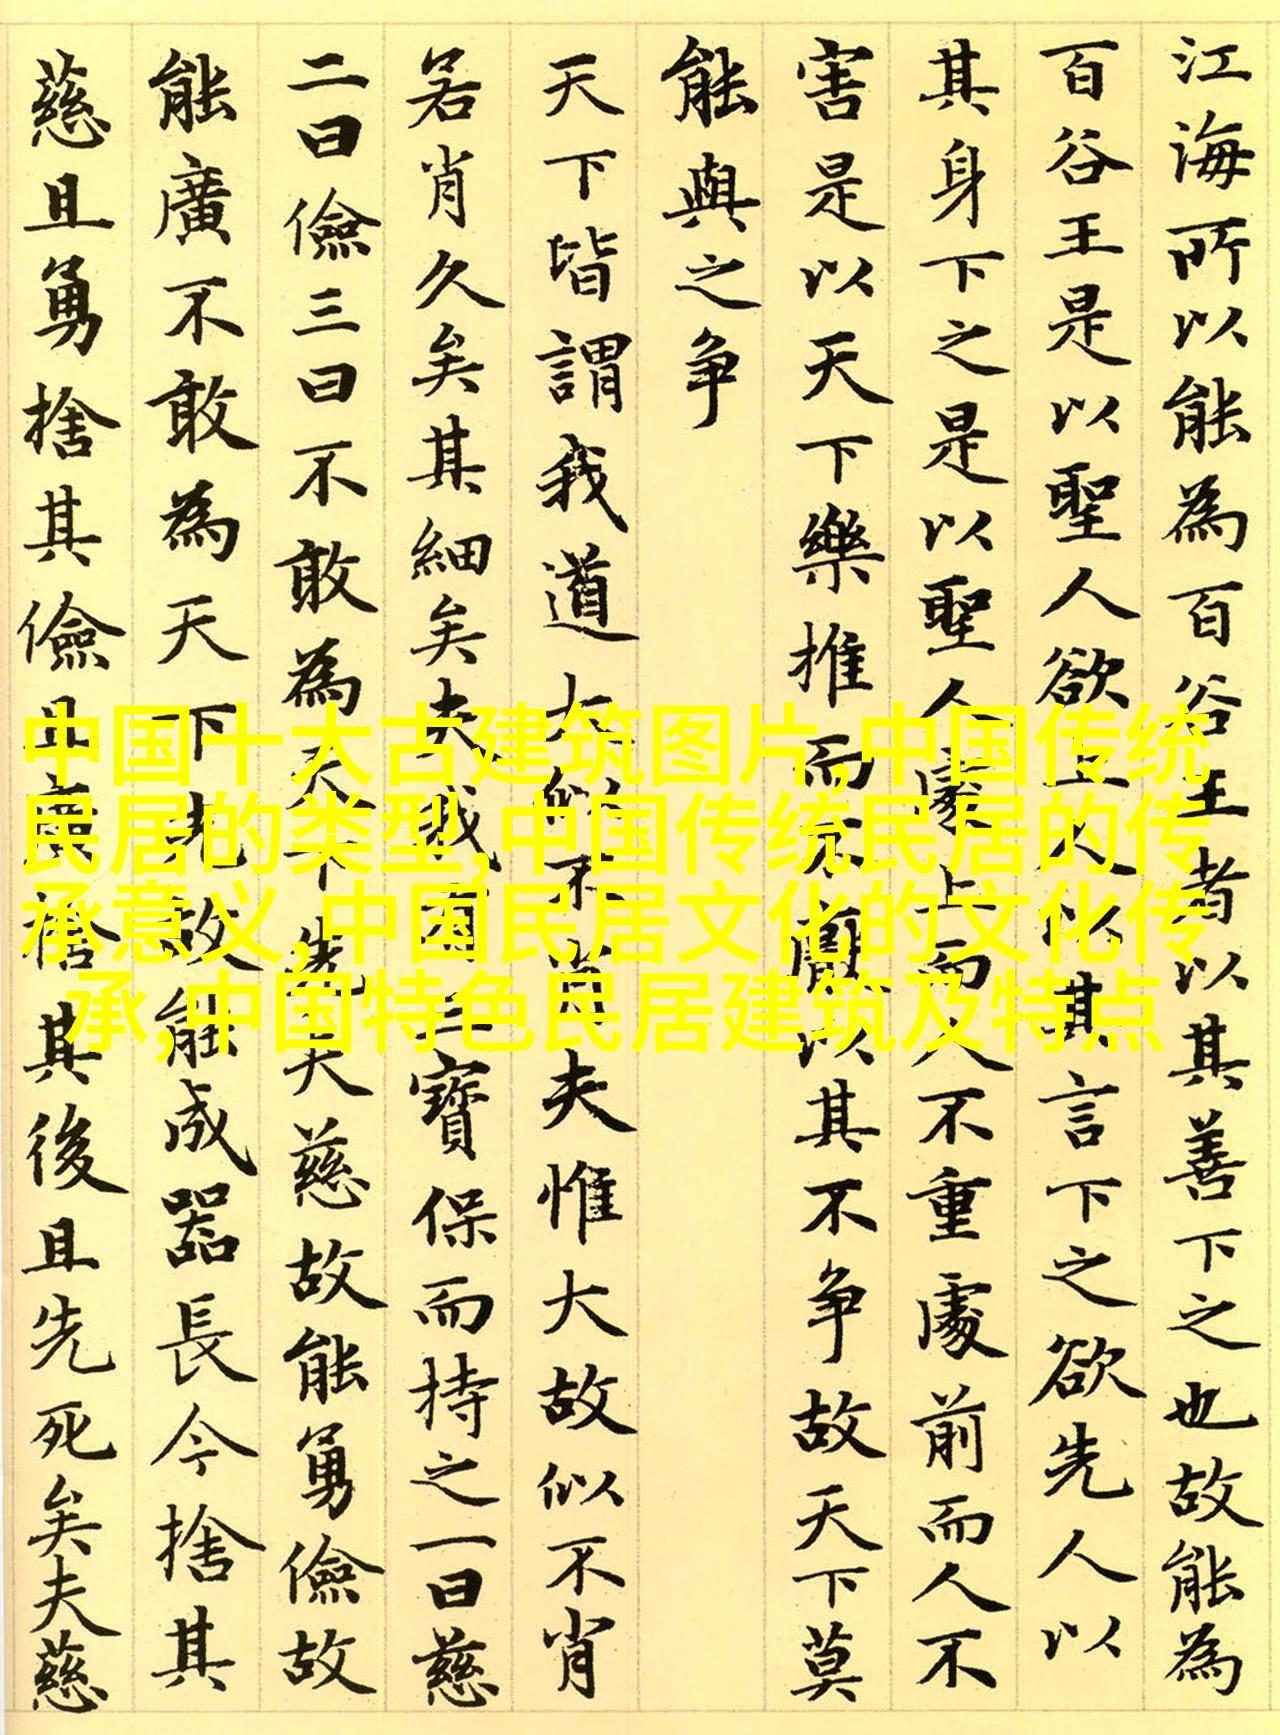 江海所以能為百谷王者以其善下之也故能為
百谷王是以聖人欲上人以其言下之欲先人以
其身下之是以聖人處上而人不重處前而人不
害是以天下樂推而不厭以其不争故天下莫
能與之争
天下皆謂我道大似不肖夫惟大故似不肖
若肖久矣其細矣夫我有三寶保而持之一曰慈
二曰儉三曰不敢為天下先夫慈故能勇儉故
能廣不敢為天下先故能成器長今捨其
慈且勇捨其儉且廣捨其後且先死矣夫慈
中国十大古建筑图片,中国传统
民居的类型,中国传统民居的传
承意义,中国民居文化的文化传
承,中国特色民居建筑及特点